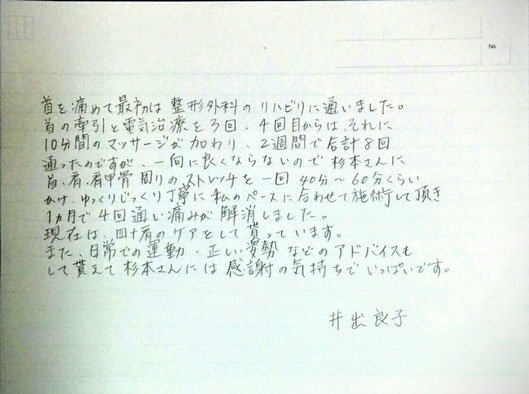 No.
首を痛めて最初は 整形外科の リハビリに通いました。
首の牽引と電気治療を3回、4回目からは、それに
10分間のマッサージが加わり、2週間で合計8回
通ったのですが、一向に良くならないので杉本さんに
首、肩、肩甲骨 周りの ストレッチを 一回 40分～60分くらい
かけ、ゆっくりじっくり丁寧に 私のペースに合わせて施術して頂き
1ヵ月で4回通い痛みが 解消しました。
現在は、四十肩のケアとして貰っています。
また、日常での運動、正しい姿勢 などの アドバイスも
して貰えて杉本さんには 感謝の気持ちで いっぱいです。
井出良子